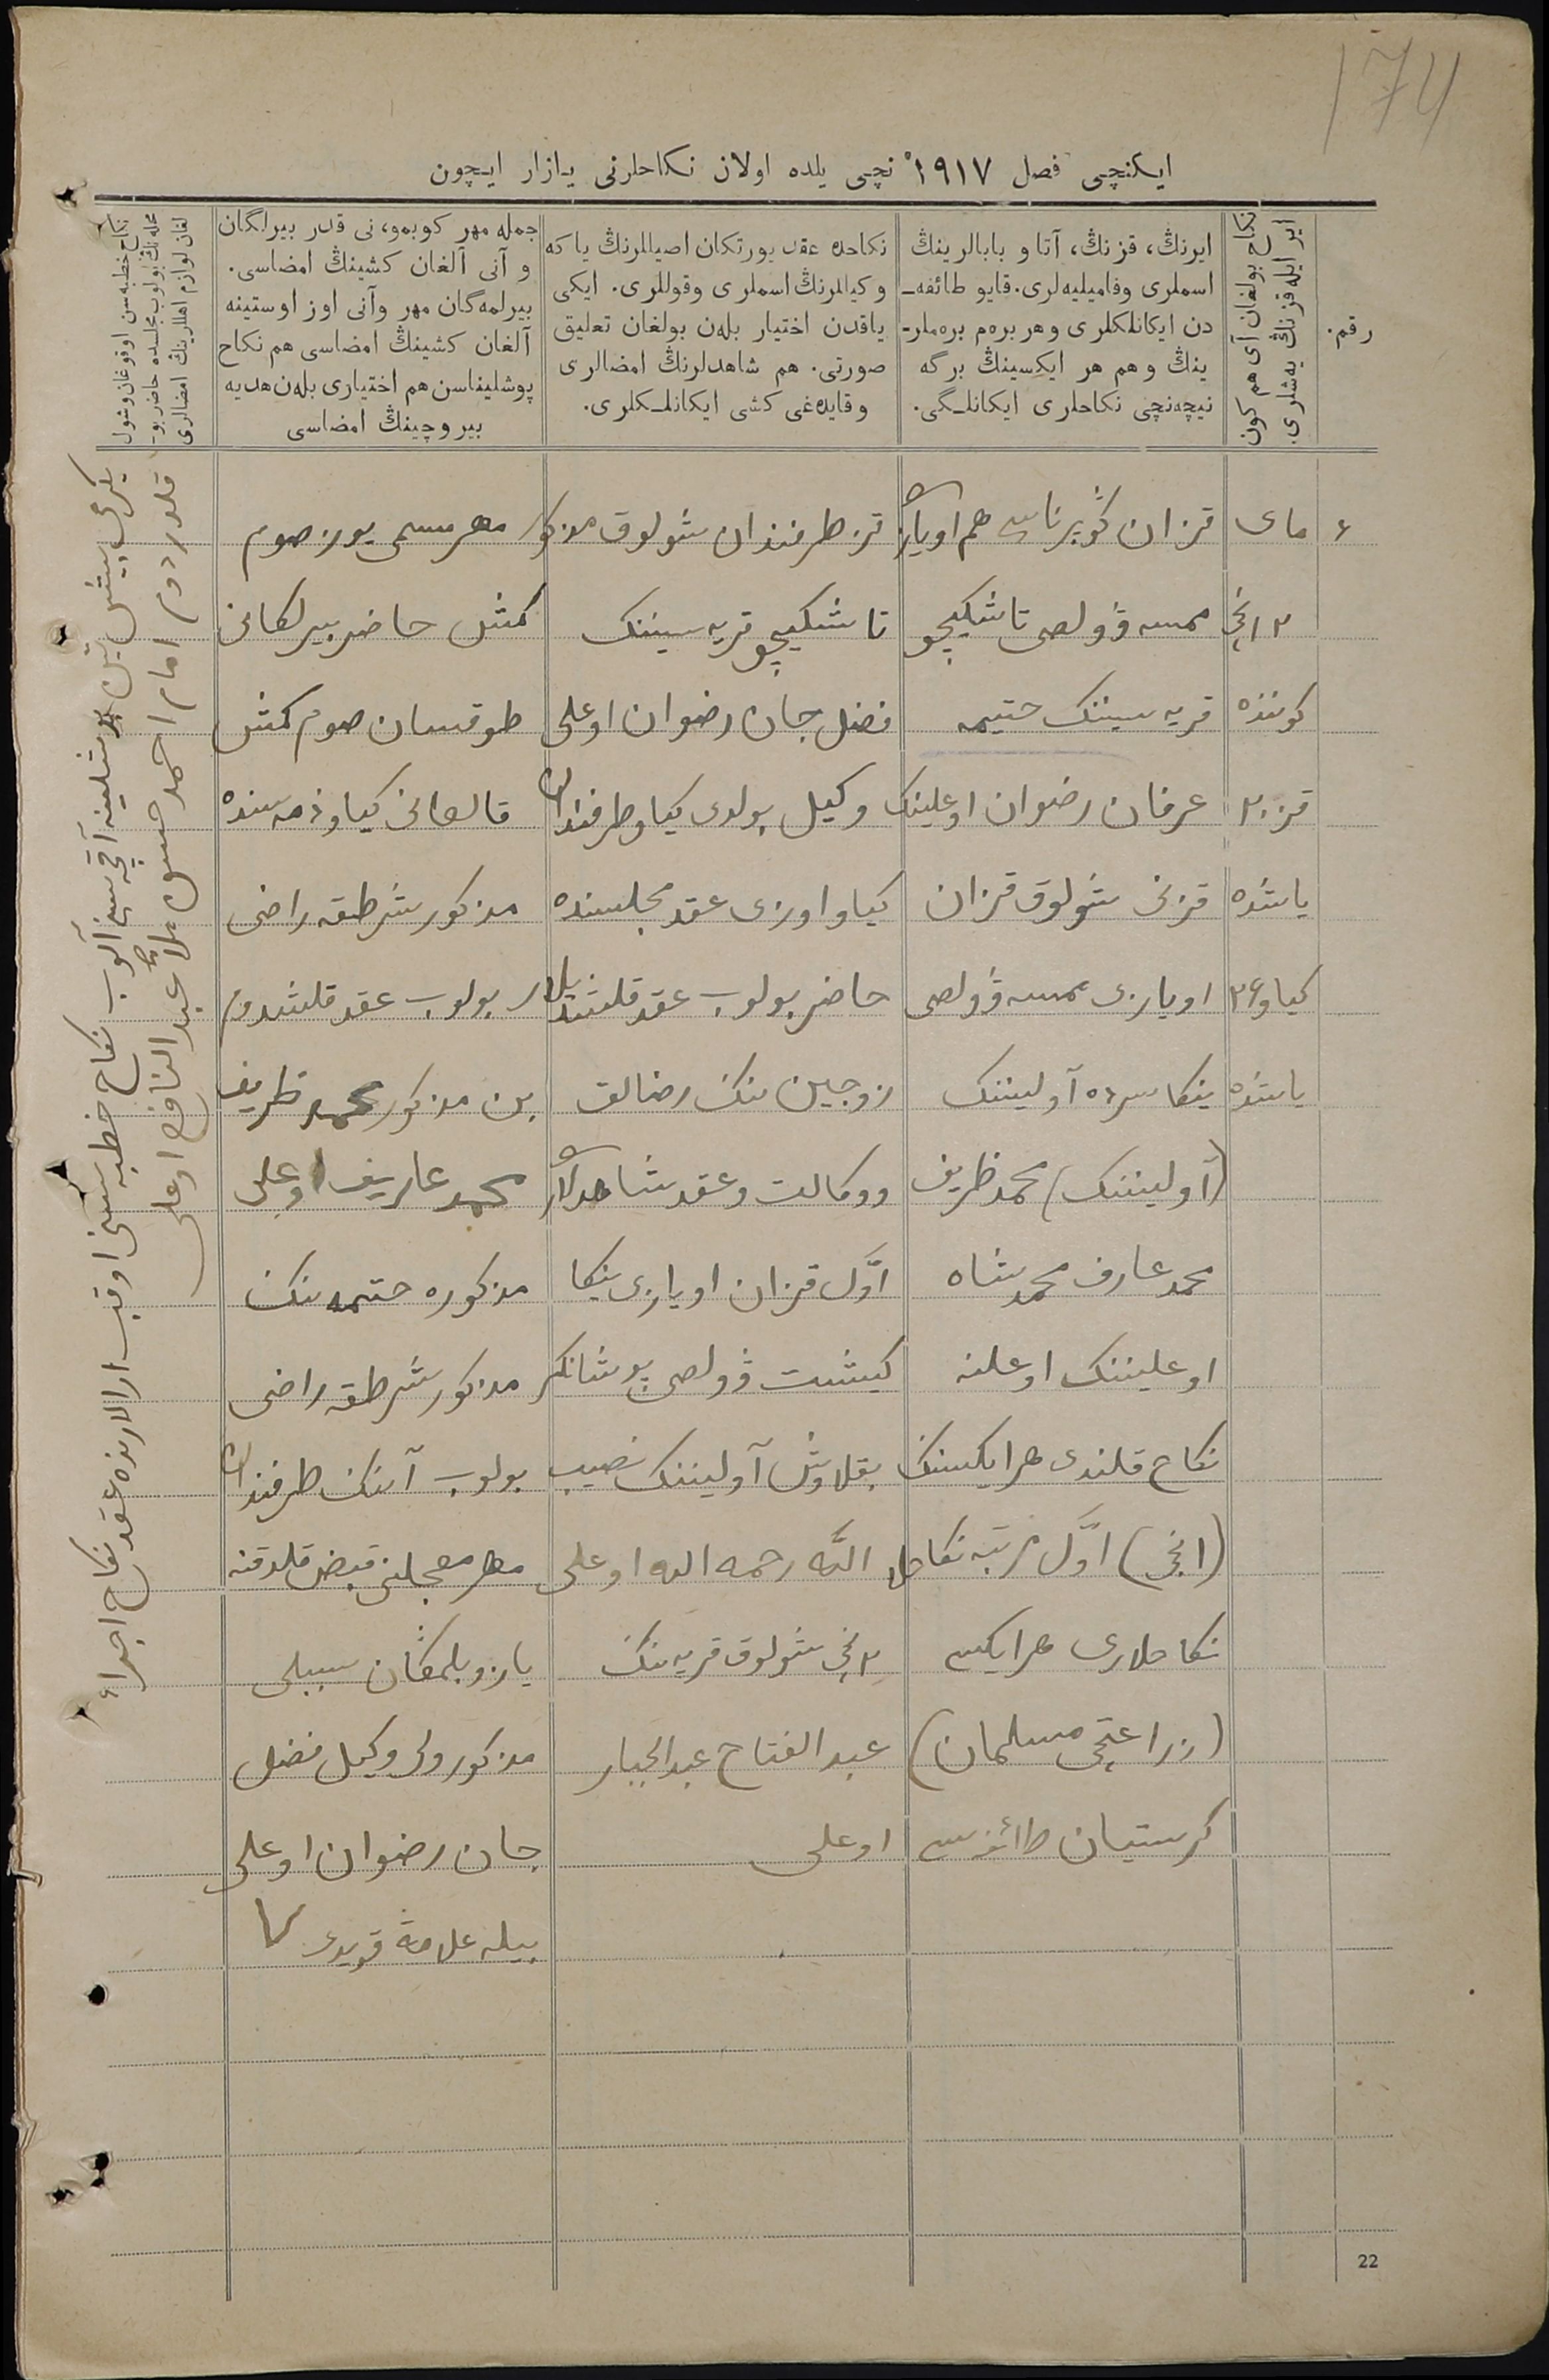 174
ایکنچی فصل ۱۹۱۷ نچی یلده اولان نکاحلرنی یازار ایچون
رقم.
نکاح بولغان آی هم کون
ایر ایله قزنڭ یه‌شلری.
ایرنڭ، قزنڭ، آتا و بابالرینڭ
اسملری وفامیلیه‌لری. قایو طائفه‌ـ
دن ایکانلکلری و هر بره‌م بره‌ملرـ
ینڭ و هم هر ایکسینڭ برگه
نیچه‌نچی نکاحلری ایکانلـگی.
نکاحده عقد یورتکان اصیللرنڭ یا که
وکیللرنڭ اسملری وقوللری. ایکی
یاقدن اختیار بله‌ن بولغان تعلیق
صورتی. هم شاهدلرنڭ امضالری
وقایده‌غی کشی ایکانلـکلری.
جمله مهر کوبمو، نی قدر بیرلگان
و آنی آلغان کشینڭ امضاسی.
بیرلمه‌گان مهر وآنی اوز اوستینه
آلغان کشینڭ امضاسی هم نکاح
پوشلیناسن هم اختیاری بله‌ن هدیه
بیروچینڭ امضاسی
نکاح خطبه‌سن اوقوغان وشول
محله‌نڭ بولوب مجلسده حاضر بوـ
لغان لوازم اهللرینڭ امضالری
۶
مای
۱۲نچی
کوننده
قز ۲۰
یاشده
کیاو ۲۶
یاشده
قزان گوبیرناسی هم اویازی
ممسه ڤولصی تاشکیچو
قریه سیننک حتیمه
عرفان رضوان اوغلینک
قزنی شولوق قزان
اویازی ممسه ڤولصی
ینکا سرده آولیننک
(آولیننک) محمد ظریف
محمد عارف محمدشاه
اوغلیننک اوغلنه
نکاح قلندی هر ایکسننک
(انچی) اوّل مرتبه نکاحلا
نکاحلاری هر ایکسی
(زراعتچی مسلمان)
کرستیان طائفه‌سی
قز طرفندان شولوق مذکور
تاشکیچو قریه سیننک
فضل جان رضوان اوغلی
وکیل بولدی کیاو طرفندان
کیاو اوزی عقد مجلسنده
حاضر بولوب عقد قلشدیلار
زوجین ننک رضالق
ووکالت وعقد شاهدلاری
اوّل قزان اویازی ینکا
کیشیت ڤولصی پوشانکر
بقلاوش آولیننک نصیب
الله رحمه الله اوغلی
۲نچی شولوق قریه ننک
عبد الفتاح عبد الجبار
اوغلی
مهر مسمی یوز صوم
کمش حاضر بیرلکانی
طوقسان صوم کمش
قالغانی کیاو ذمه سنده
مذکور شرطقه راضی
بولوب عقد قلشدوم
بن مذکور محمد ظریف
محمد عاریف اوغلی
مذکوره حتیمه ننک
مذکور شرطقه راضی
بولوب آننک طرفندان
مهر معجلنی قبض قلدقنه
یازو بلمڭان سببلی
مذکور ولی وکیل فضل
جان رضوان اوغلی
بیله علامة قویدی
یکرمی بیش تین پوشلینه آقچه سنی آلوب نکاح خطبه سینی اوقب ارالارنده عقد نکاح اجراء
قلدردم امام احمد حسین ملا عبد النافع اوغلی
22